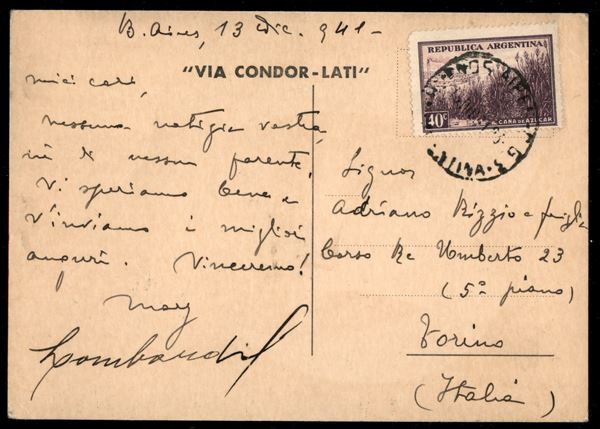 B. Aires, 13 Dic. 941-
"VIA CONDOR-LATI"
miei cari,
nessuna notizia vostra,
nè di nessun parente.
Vi speriamo bene e
v'inviamo i migliori
auguri. Vinceremo!
May
Lombardi
REPUBLICA ARGENTINA
40c
CAÑA DE AZUCAR
BUENOS AIRES
Signor
Adriano Rizzio e famiglia
Corso Re Umberto 23
(5º piano)
Torino
(Italia)